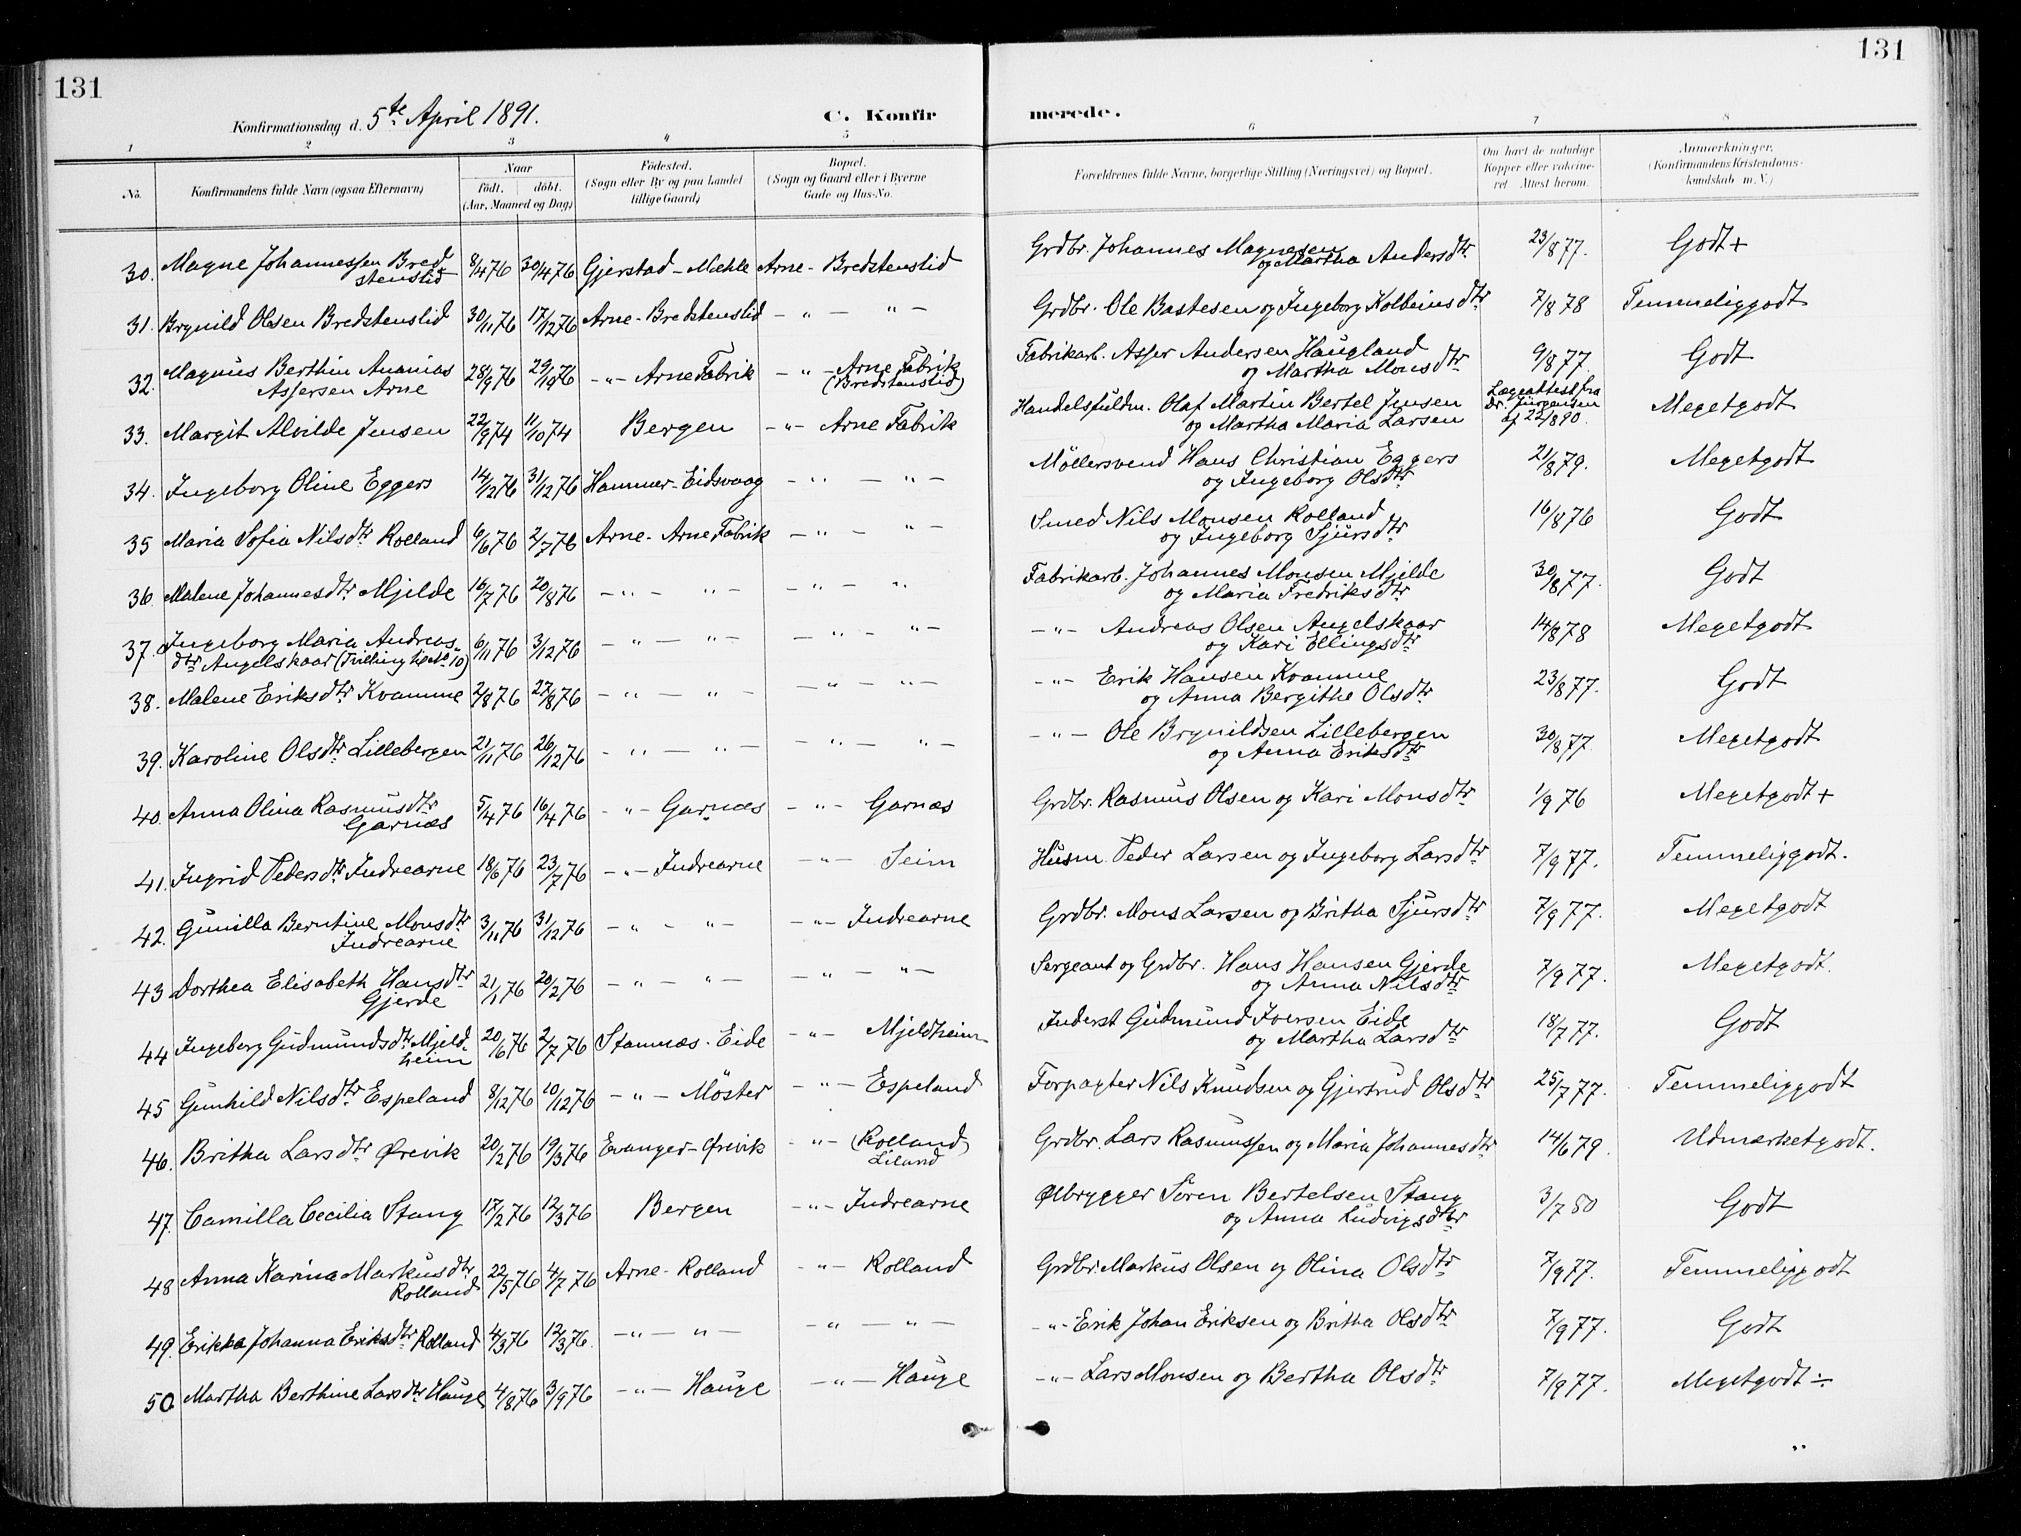 131
131
Konfirmationsdag d. 5te April 1891.
C. Konfirmerede.
1 2 3 4 5 6 7 8
No.
Konfirmandens fulde Navn (ogsaa Efternavn)
Naar
født. døbt.
(Aar, Maaned og Dag)
Fødested.
(Sogn eller By og paa Landet
tillige Gaard)
Bopæl.
(Sogn og Gaard eller i Byerne
Gade og Hus-No.
Forældrenes fulde Navne, borgerlige Stilling (Næringsvei) og Bopæl.
Om havt de naturlige
Kopper eller vaksine-
ret. Attest herom.
Anmærkninger.
(Konfirmandens Kristendoms-
kundskab m.V.)
30. Magne Johannessen Bred- stenslid 8/4 76 30/4 76 Gjerstad - Mæhle Arne - Bredstenslid Grdbr. Johannes Magnesen og Martha Andersdtr 23/8 77. Godt +
31. Brynild Olsen Bredstenslid 30/11 76 17/12 76 Arne - Bredstenslid - " - " - Grdbr. Ole Bastesen og Ingeborg Kolbeinsdtr 7/8 78 Temmeliggodt
32. Magnus Berthin Ananias Assersen Arne 28/9 76 29/10 76 - " - Arne Fabrik - " - Arne Fabrik (Bredstenslid) Fabrikarb. Asser Andersen Haugland og Martha Monsdtr 9/8 77. Godt
33. Margit Alvilde Jensen 22/9 74 11/10 74 Bergen - " - Arne Fabrik Handelsfuldm. Olaf Martin Bertel Jensen og Martha Maria Larsen Lægeattest fra Dr. Jürgensen af 22/8 90. Megetgodt
34. Ingeborg Oline Eggers 14/12 76 31/12 76 Hammer - Eidsvaag - " - " - Møllersvend Hans Christian Eggers og Ingeborg Olsdtr 21/8 79. Megetgodt
35 Maria Sofia Nilsdtr Rolland 6/6 76 2/7 76 Arne - Arne Fabrik - " - " - Smed Nils Monsen Rolland og Ingeborg Sjursdtr 16/8 76 Godt
36. Malene Johannesdtr Mjelde 16/7 76 20/8 76 - " - " - - " - " Fabrikarb. Johannes Monsen Mjelde og Maria Fredriksdtr 30/8 77. Godt
37. Ingeborg Maria Andreas- dtr Angelskaar (Tvilling til No 10) 6/11 76 3/12 76 - " - " - - " - " - - " - Andreas Olsen Angelskaar og Kari Ellingsdtr 14/8 78 Megetgodt
38. Malene Eriksdtr Kvamme 2/8 76 27/8 76 - " - " - - " - " - - " - Erik Hansen Kvamme og Anna Bergithe Olsdtr 23/8 77. Godt
39. Karoline Olsdtr Lillebergen 21/11 76 26/12 76 - " - " - - " - " - - " - Ole Brynildsen Lillebergen og Anna Eriksdtr 30/8 77. Megetgodt
40. Anna Olina Rasmusdtr Garnæs 5/4 76 16/4 76 - " - Garnæs - " - Garnæs Grdbr. Rasmus Olsen og Kari Monsdtr 1/9 76 Megetgodt +
41. Ingrid Pedersdtr Indrearne 18/6 76 23/7 76 - " - Indrearne - " - Seim Husm. Peder Larsen og Ingeborg Larsdtr 7/9 77. Temmeliggodt.
42. Gunilla Berntine Monsdtr Indrearne 3/11 76 31/12 76 - " - " - - " - Indrearne Grdbr. Mons Larsen og Britha Sjursdtr 7/9 77. Megetgodt
43 Dorthea Elisabeth Hansdtr Gjerde 21/1 76 20/2 76 - " - " - - " - " - Sergeant og Grdbr. Hans Hansen Gjerde og Anna Nilsdtr 7/9 77. Megetgodt.
44 Ingeborg Gudmundsdtr Mjeld- heim 20/6 76 2/7 76 Stamnæs - Eide - " - Mjeldheim Inderst Gudmund Iversen Eide og Martha Larsdtr 18/7 77. Godt
45 Gunhild Nilsdtr Espeland 8/12 76 10/12 76 - " - Møster - " - Espeland Forpagter Nils Knudsen og Gjertrud Olsdtr 25/7 77. Temmeliggodt
46. Britha Larsdtr Ørevik 20/2 76 19/3 76 Evanger - Ørevik - " - (Rolland) Liland Grdbr. Lars Rasmussen og Maria Johannesdtr 14/6 79. Udmærketgodt.
47. Camilla Cecilia Stang 17/2 76 12/3 76 Bergen - " - Indrearne Ølbrygger Sören Bertelsen Stang og Anna Ludvigsdtr 3/7 80 Godt
48 Anna Karina Markusdtr Rolland 22/5 76 4/7 76 Arne - Rolland - " - Rolland Grdbr. Markus Olsen og Olina Olsdtr 7/9 77. Temmeliggodt
49. Erikka Johanna Eriksdtr Rolland 4/3 76 12/3 76. - " - " - - " - " - - " - Erik Johan Eriksen og Britha Olsdtr 7/9 77. Godt
50 Martha Berthine Larsdtr Hauge 4/8 76 3/9 76 - " - Hauge - " - Hauge - " - Lars Monsen og Bertha Olsdtr 7/9 77. Megetgodt ÷